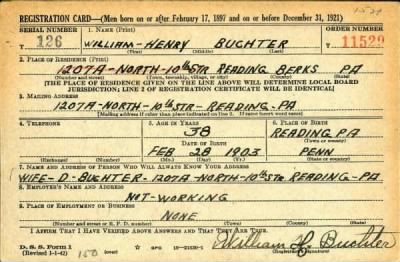 REGISTRATION CARD—(Men born on or after February 17, 1897 and on or before December 31, 1921)
SERIAL NUMBER 1. NAME (Print) ORDER NUMBER
T 126 WILLIAM-HENRY BUCHTER T 11529
(First) (Middle) (Last)
2. PLACE OF RESIDENCE (Print)
1207A-NORTH-10th STR READING BERKS PA
(Number and street) (Town, township, village, or city) (County) (State)
[THE PLACE OF RESIDENCE GIVEN ON THE LINE ABOVE WILL DETERMINE LOCAL BOARD
JURISDICTION; LINE 2 OF REGISTRATION CERTIFICATE WILL BE IDENTICAL]
3. MAILING ADDRESS
1207A-NORTH-10th STR-READING-PA
[Mailing address if other than place indicated on line 2. If same insert word same]
4. TELEPHONE 5. AGE IN YEARS 6. PLACE OF BIRTH
38 READING PA
DATE OF BIRTH (Town or county)
FEB 28 1903 PENN
(Exchange) (Number) (Mo.) (Day) (Yr.) (State or country)
7. NAME AND ADDRESS OF PERSON WHO WILL ALWAYS KNOW YOUR ADDRESS
WIFE-D-BUCHTER-1207A-NORTH-10th STR READING-PA
8. EMPLOYER'S NAME AND ADDRESS
NOT-WORKING
9. PLACE OF EMPLOYMENT OR BUSINESS
NONE
(Number and street or R. F. D. number) (Town) (County) (State)
I AFFIRM THAT I HAVE VERIFIED ABOVE ANSWERS AND THAT THEY ARE TRUE.
D. S. S. Form 1
(Revised 1-1-42) 16-21630-1 William H. Buchter
(Registrant's signature)